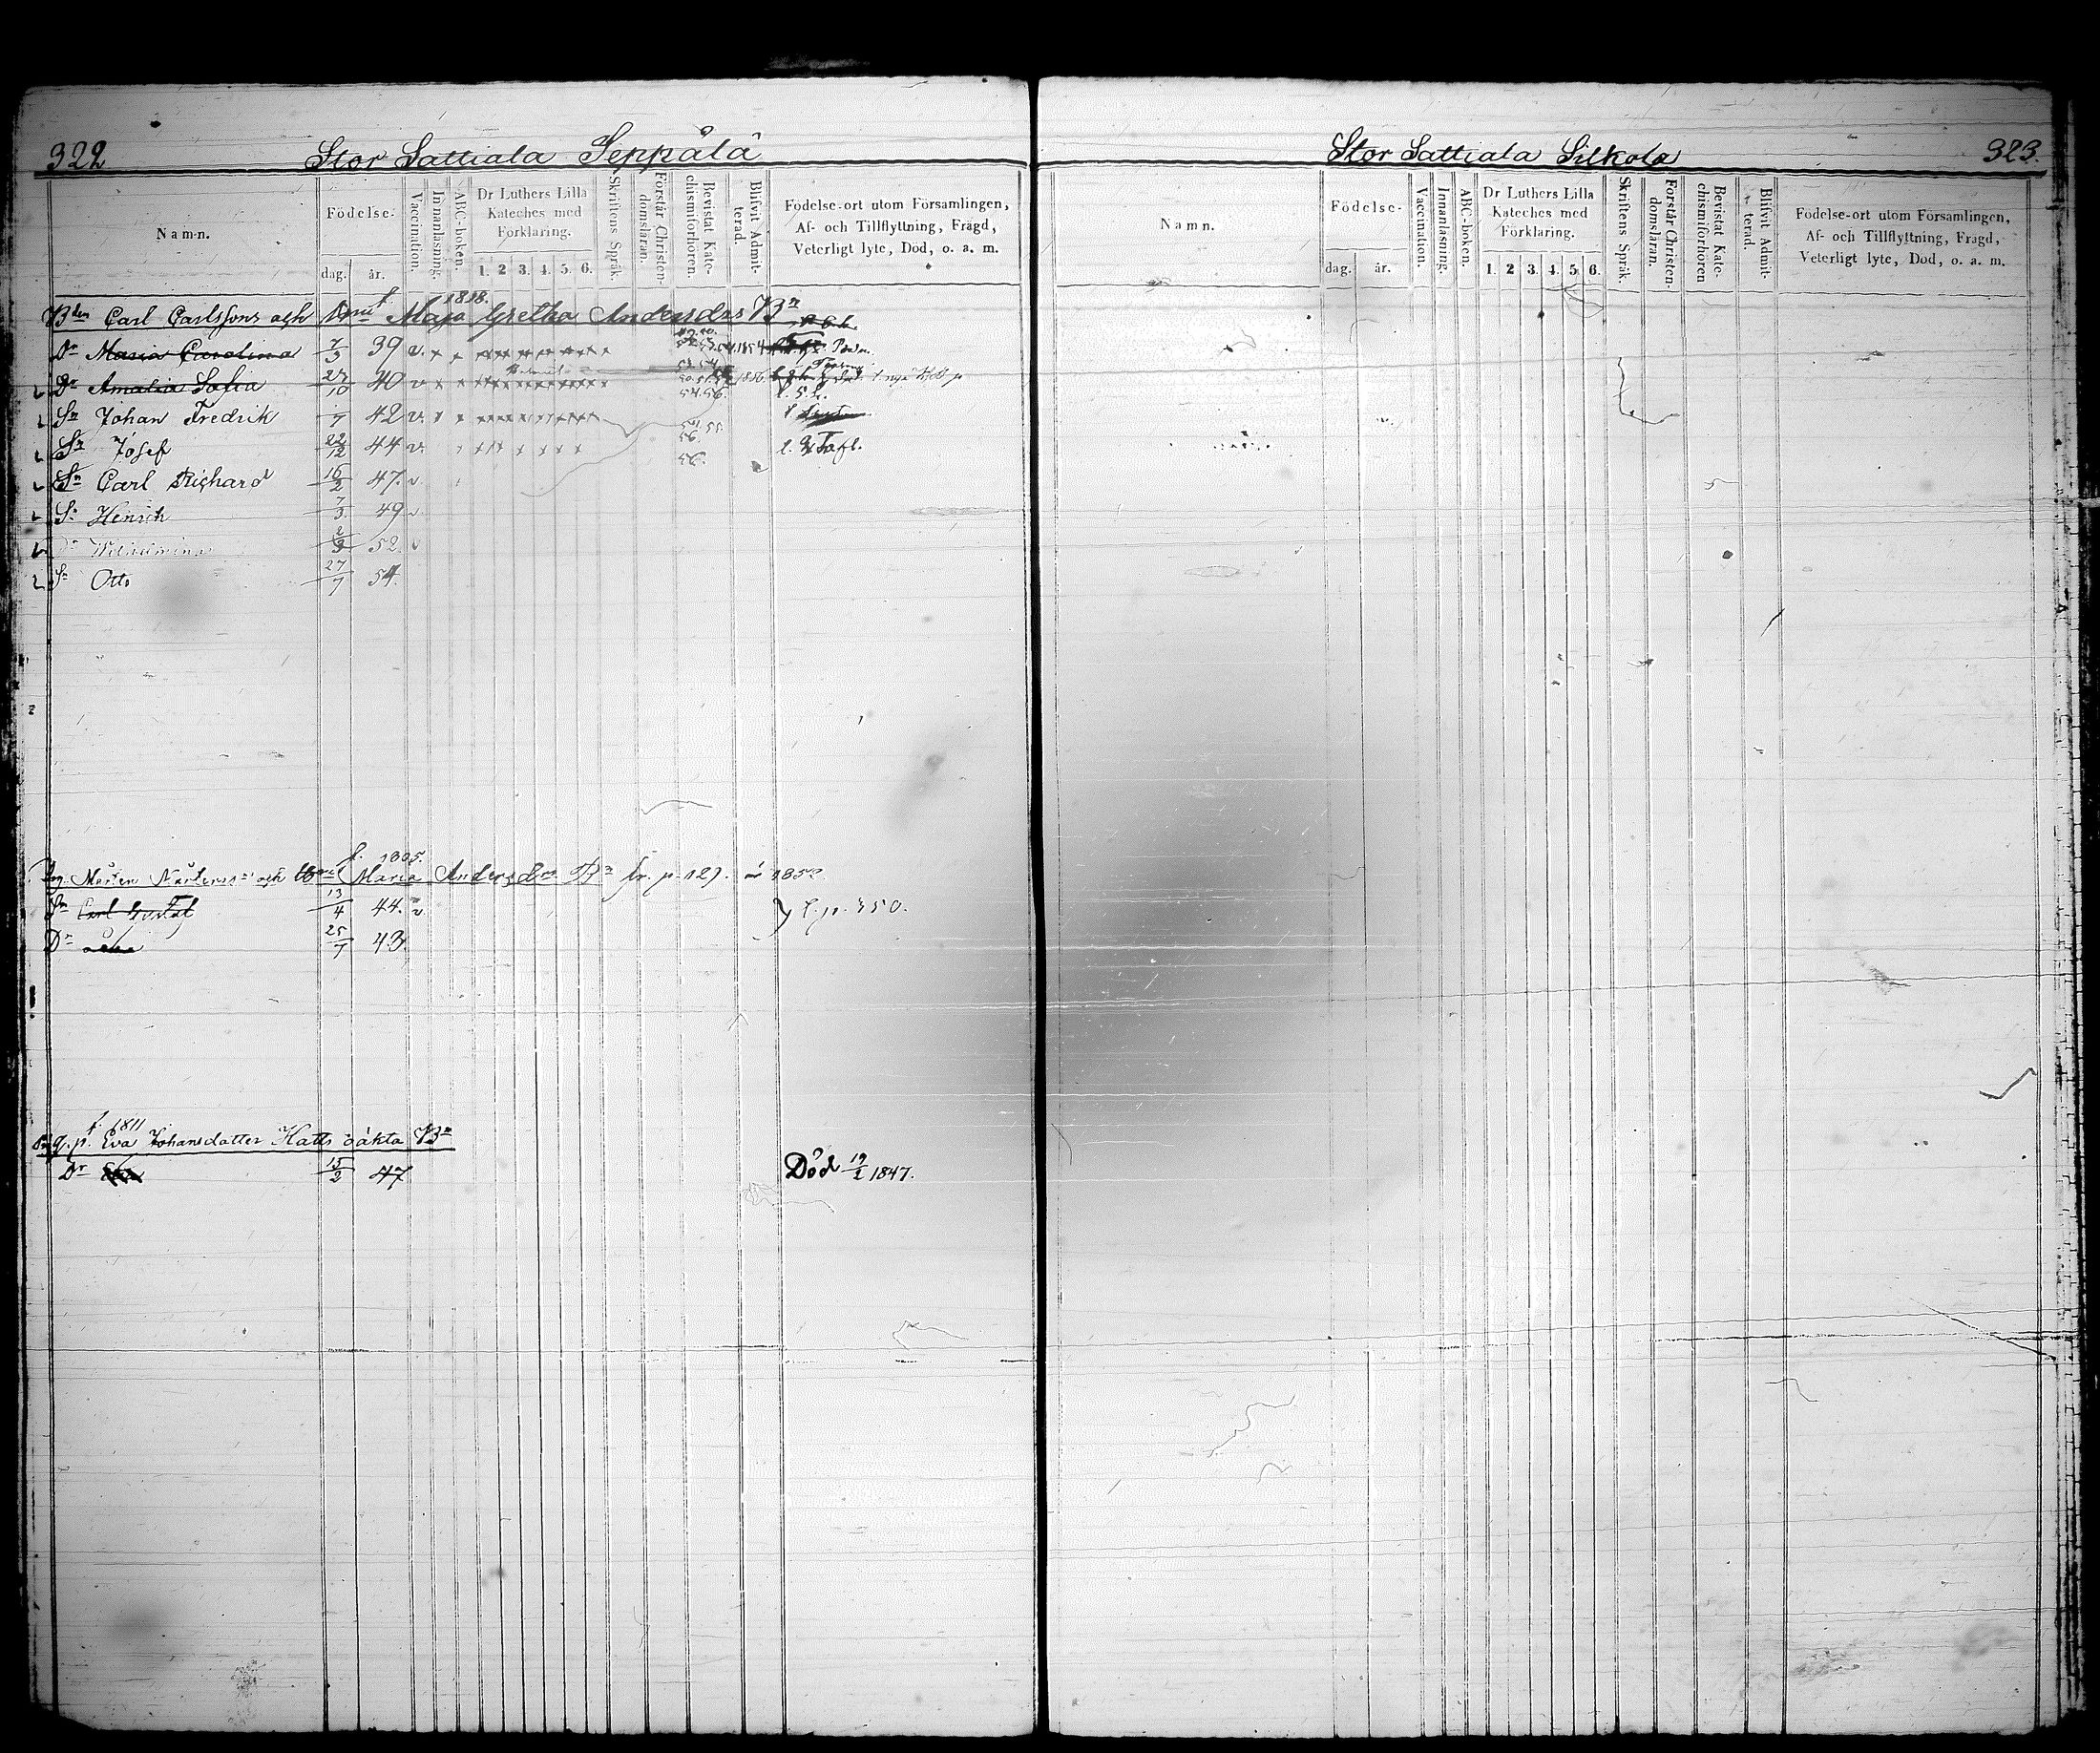 322 Stor Sattiala Seppälä
Namn. Födelse- dag. år. Vaccination. Innanläsning. ABC-boken. Dr Luthers Lilla Kateches med Förklaring. 1. 2 3. 4. 5. 6. Skriftens Språk. Förstår Christendomsläran. Bevistat Katechismiförhören. Blifvit Admitterad. Födelse-ort utom Församlingen, Af- och Tillflyttning, Frägd, Veterligt lyte, Död, o. a. m.
f. 1818.
Bden Carl Carlssons och Maja Gretha Andersdrs Bn
Dr Maria Carolina 7/3 39 v. 1854
Dr Amalia Sofia 27/10 40 v 1856
54.56.
Sn Johan Fredrik 7 42 v.
Sn Josef 22/12 44 v. 56.
Sn Carl Richard 16/2 47. v. 56.
Sn Henrik 7/3 49 v
Dr Wilhelmina 2/3 52. v
Sn Otto 27/7 54.
f. 1805.
Mårten Mårtenss och Maria Andersdrs Bn fr. p. 129.
Sn Carl Gustaf 13/4 44. v t. p. 350.
Dr 25/7 43.
f. 1811
q. p. Eva Johansdatter Hatts oäkta Bn
Dr 15/2 47 Död 19/2 1847.
Stor Sattiala Silkola 323.
Namn. Födelse- dag. år. Vaccination. Innanläsning. ABC-boken. Dr Luthers Lilla Kateches med Förklaring. 1. 2 3. 4. 5. 6. Skriftens Språk. Förstår Christendomsläran. Bevistat Katechismiförhören Blifvit Admitterad. Födelse-ort utom Församlingen, Af- och Tillflyttning, Frägd, Veterligt lyte, Död, o. a. m.